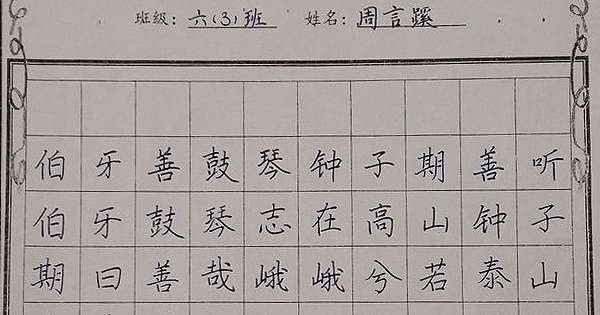 班级：六(3)班 姓名：周言蹊
伯牙善鼓琴钟子期善听
伯牙鼓琴志在高山钟子
期曰善哉峨峨兮若泰山